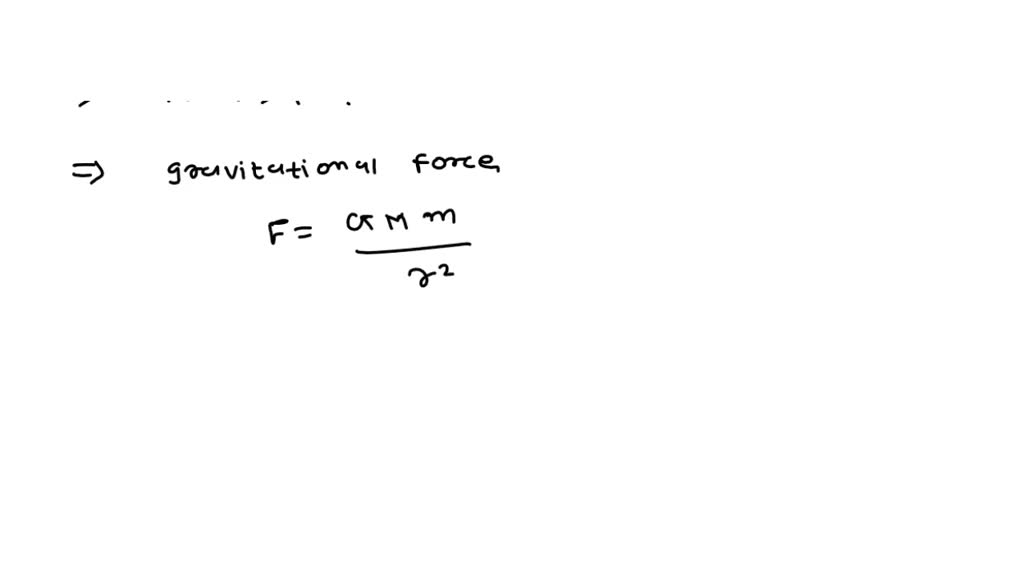 ⇒ gravitational force,
F = G M m
r²